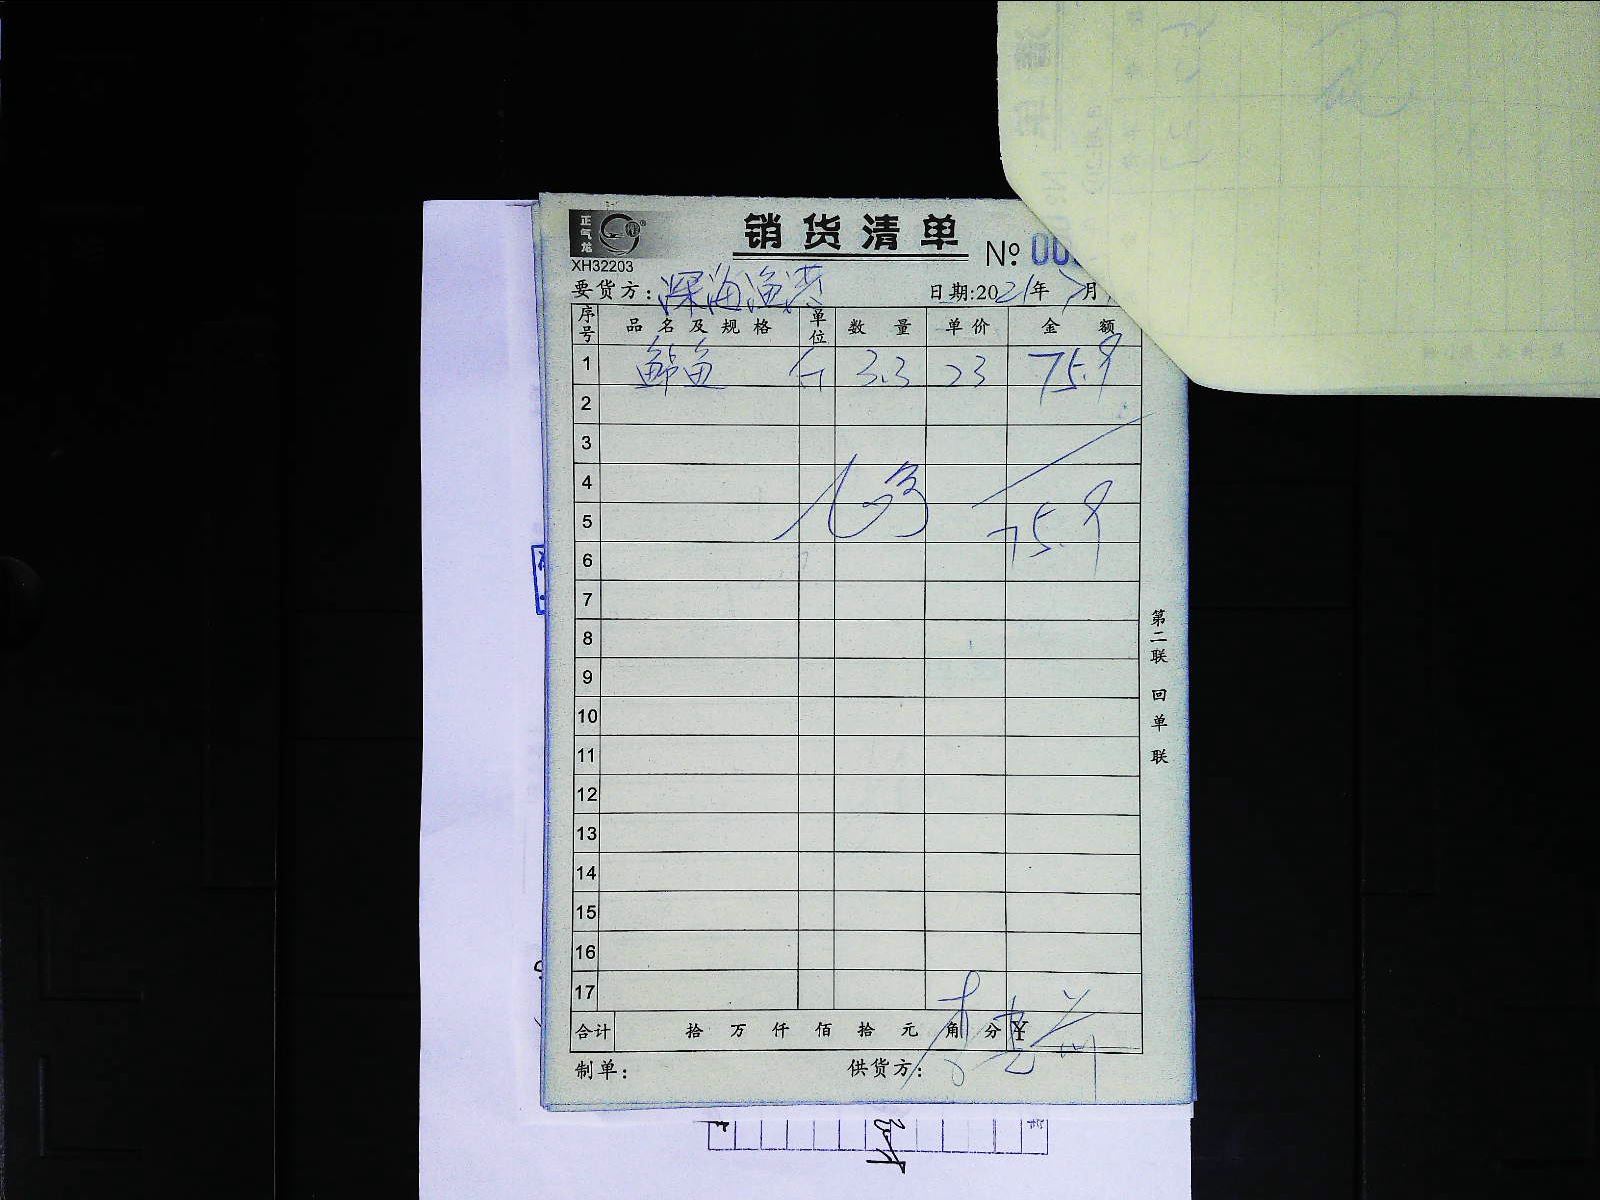 正气龙
销货清单
XH32203
№ 00
要货方：深海渔港
日期:2021年7月
序号 品名及规格 单位 数量 单价 金额
1 鲈鱼 斤 3.3 23 75.9
2
3
4
5 75.9
6
7
8
9
10
11
12
13
14
15
16
17
合计 拾 万 仟 佰 拾 元 角 分 ¥
制单：
供货方：
第二联 回单联